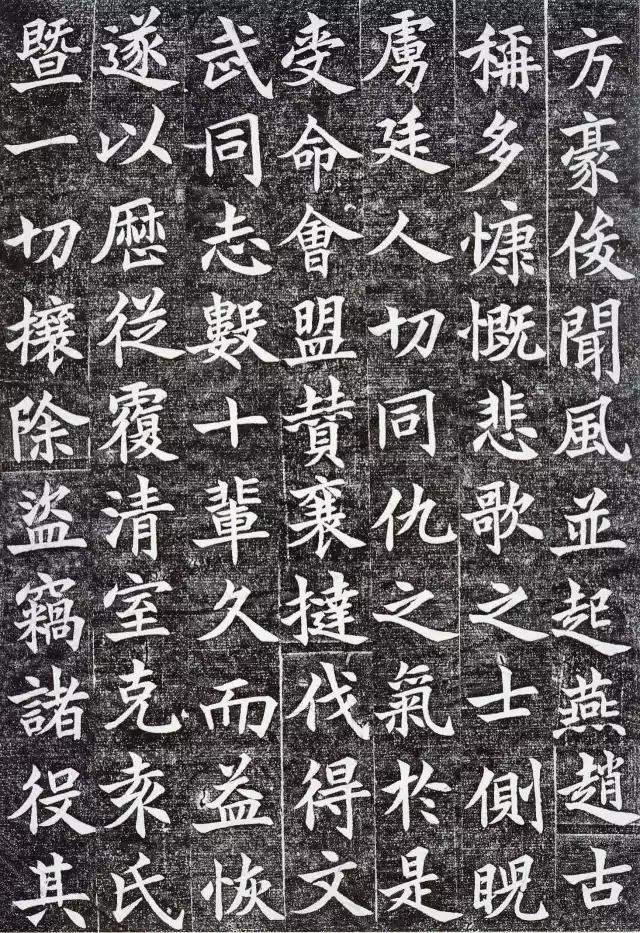 方豪俊聞風並起燕趙古
稱多慷慨悲歌之士側睨
虜廷人切同仇之氣於是
受命會盟贊襄撻伐得文
武同志數十輩久而益恢
遂以歷從覆清室克袁氏
暨一切攘除盜竊諸役其